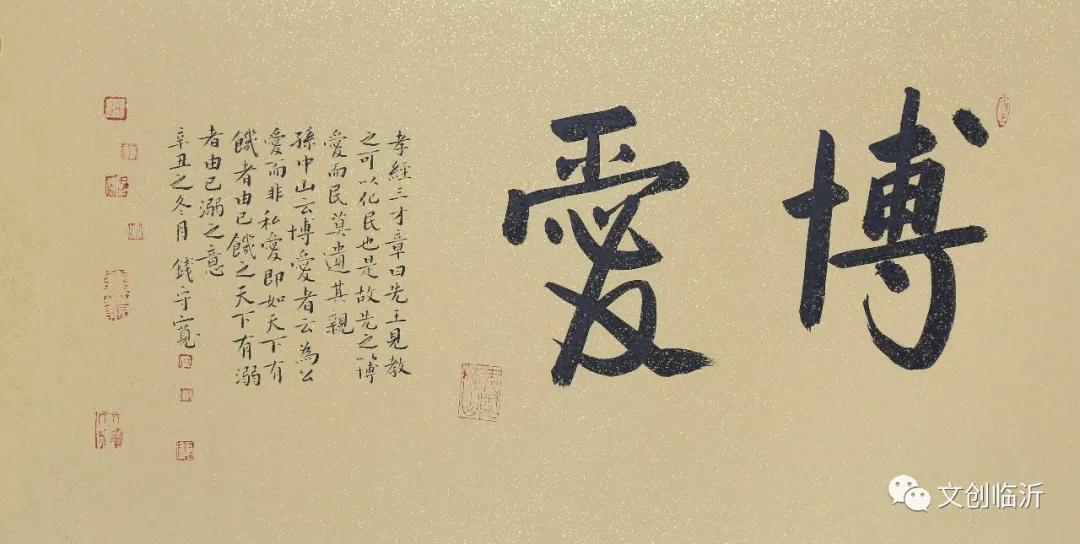 博愛
孝經三才章曰先王見教
之可以化民也是故先之博
愛而民莫遺其親
孫中山云博愛者云為公
愛而非私愛即如天下有
饑者由己饑之天下有溺
者由己溺之意
辛丑之冬月 錢守寬
文创临沂